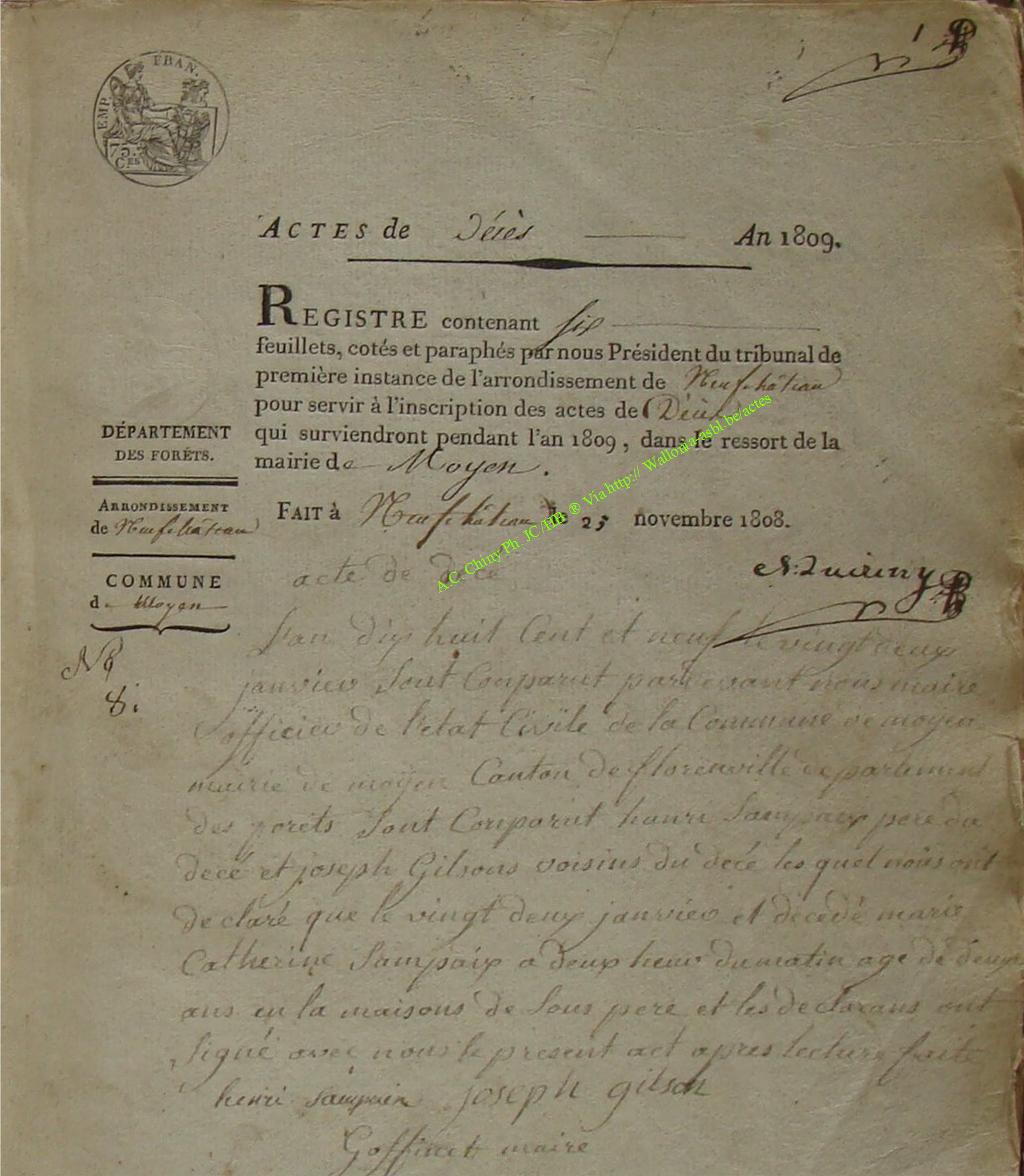 1
EMP. FRAN.
75.
C.ES
ACTES de Décès An 1809.
REGISTRE contenant six
feuillets, cotés et paraphés par nous Président du tribunal de
première instance de l'arrondissement de Neufchâteau
pour servir à l'inscription des actes de Décès
qui surviendront pendant l'an 1809, dans le ressort de la
mairie de Moyen.
FAIT à Neufchâteau le 25 novembre 1808.
DÉPARTEMENT
DES FORÊTS.
ARRONDISSEMENT
de Neufchâteau
COMMUNE
de Moyen
A.C. Chiny Ph. JC/HB ® Via http:// Wallonia-asbl.be/actes
acte de décé
No
8.
L'an dix huit Cent et neuf le vingt deux
janvier Sont Comparut pardevant nous maire
officier de l'etat Civile de la Commune de moyen
mairie de moyen Canton de florenville departement
des forêts Sont Comparut henri Sampaix pere du
décé et joseph Gilsons voisins du décé les quel nous ont
declaré que le vingt deux janvier et décédé marie
Catherine Sampaix a deux heur du matin age de deux
ans en la maisons de Sons pere et les declarans ont
Signé avec nous le present act apres lecture faite
henri Sampaix joseph gilson
Goffinet maire